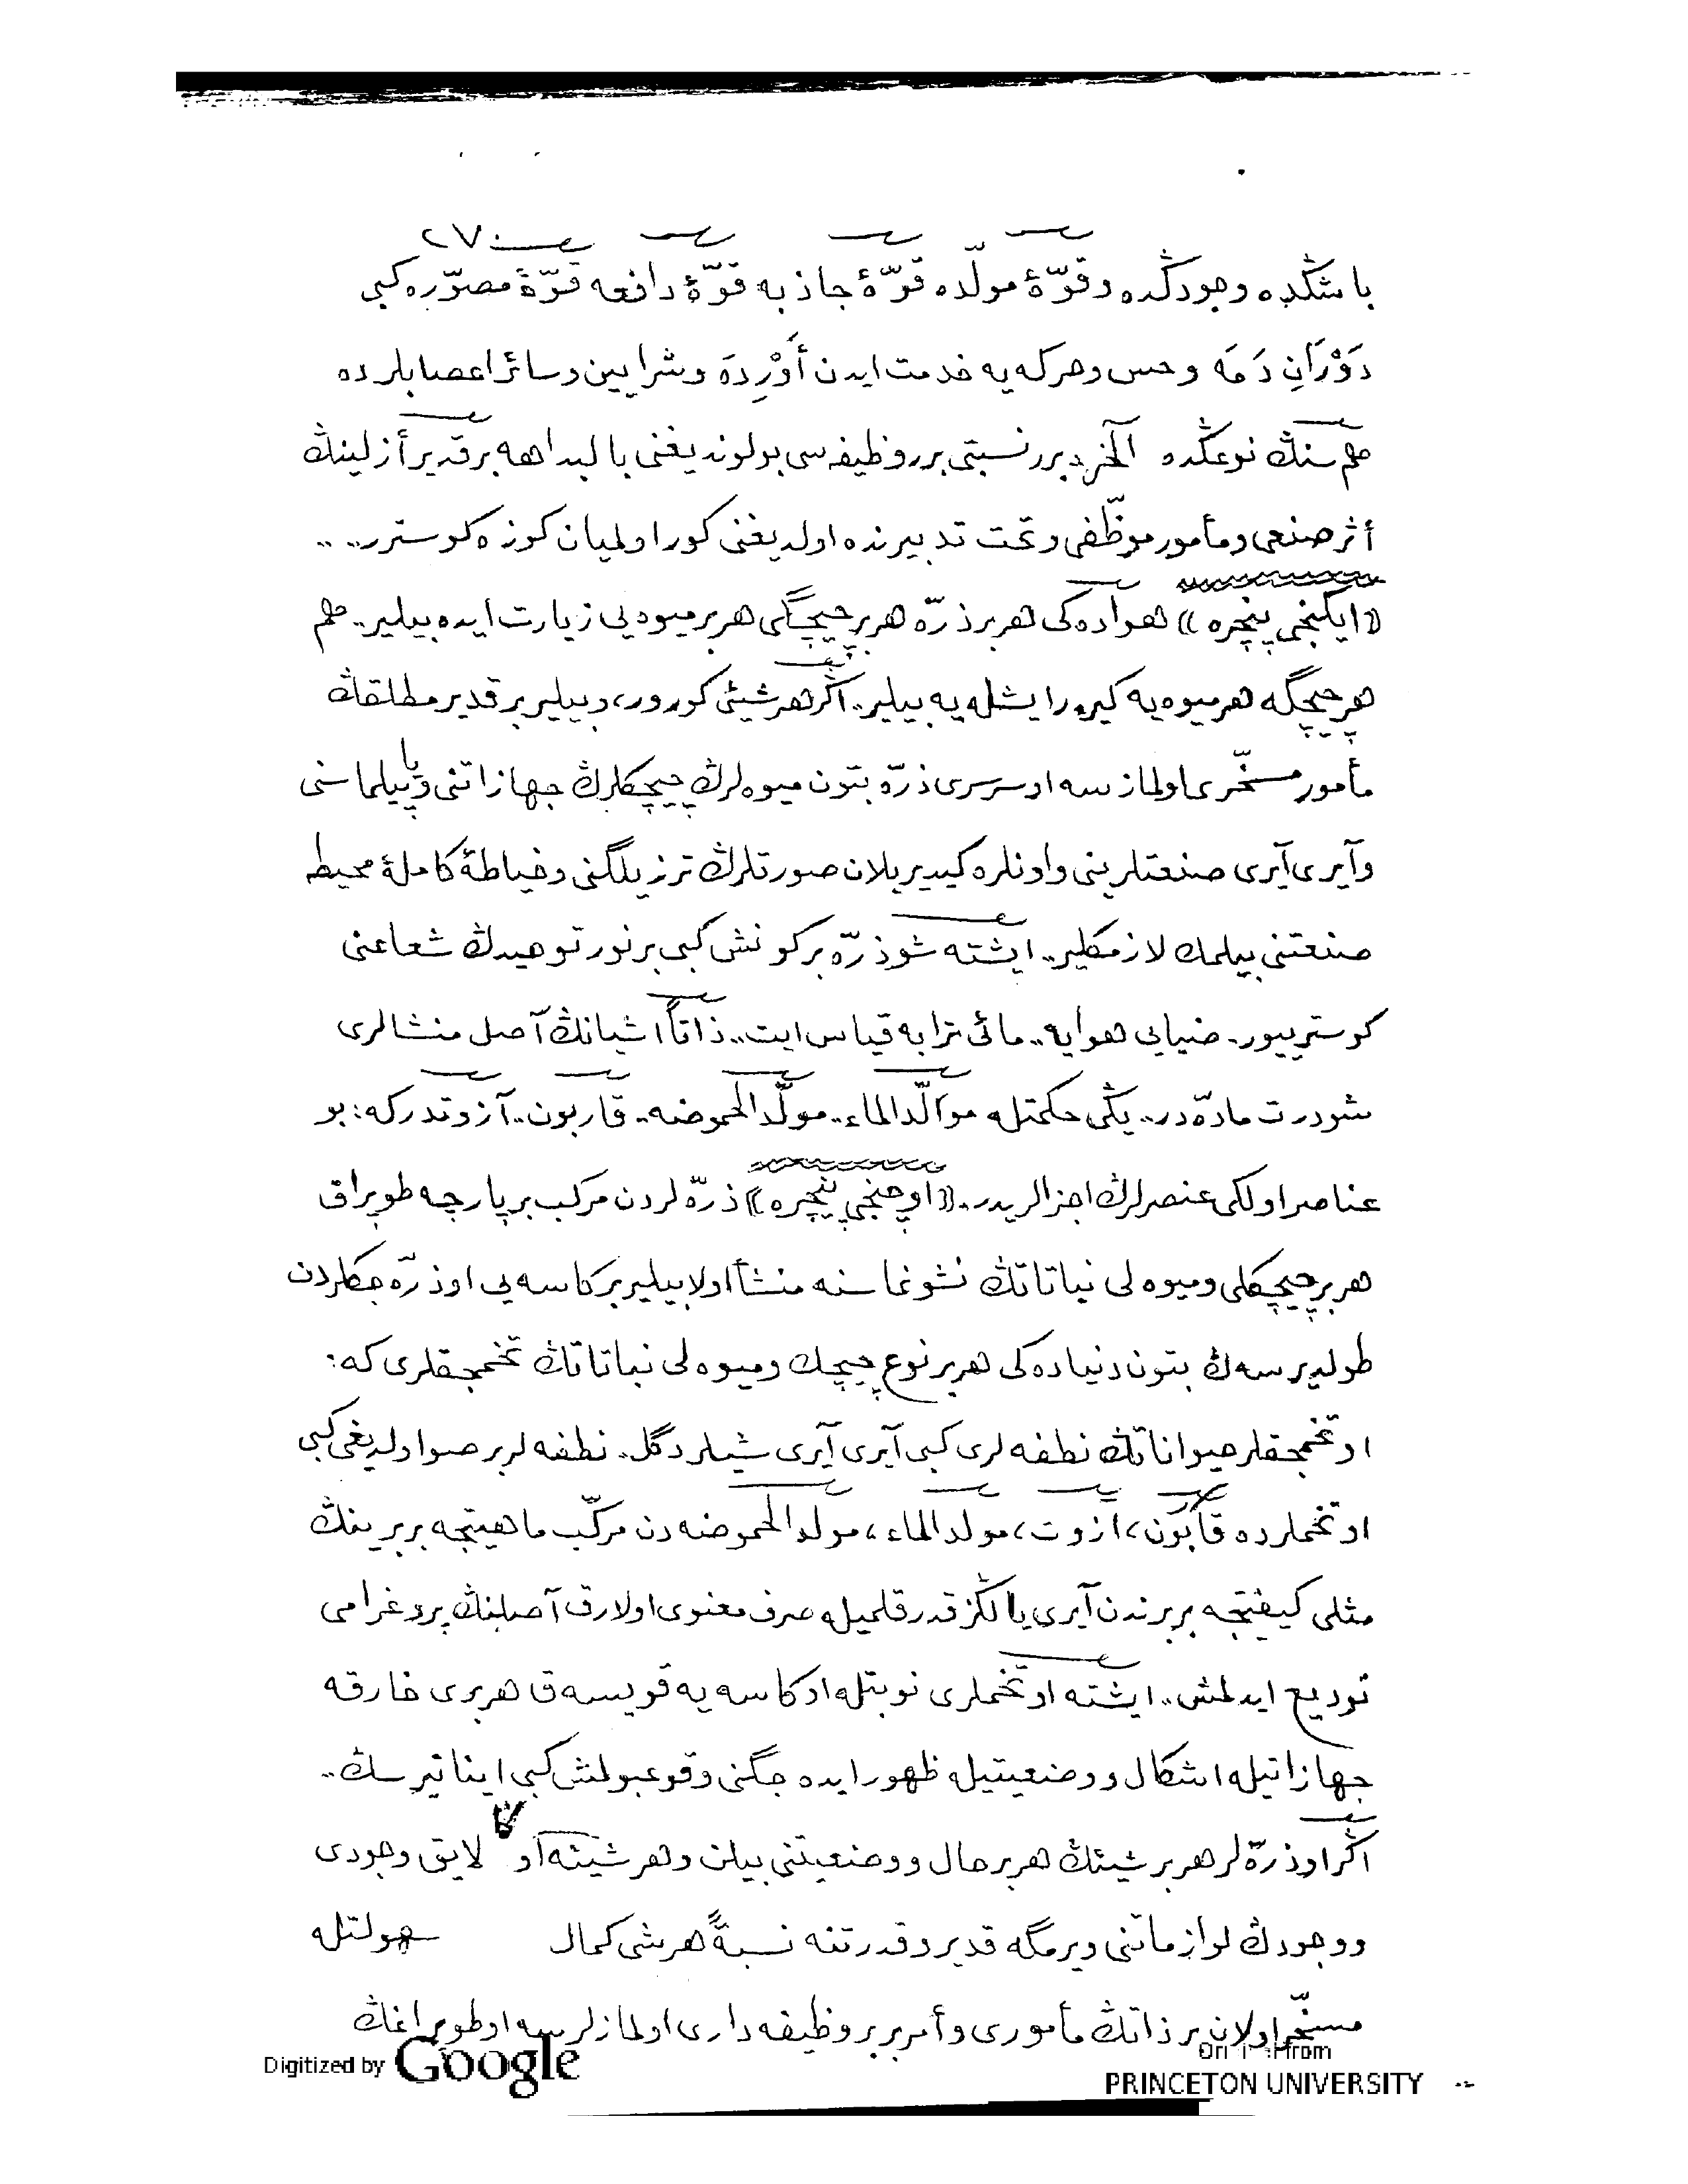 ٢٧
باشڭده وجودڭده وقوّۀ مولّده قوّۀ جاذبه قوّۀ دافعه قوّۀ مصوّره كبی
دَوْرَانِ دَمَه وحس وحركه يه خدمت ايدن أَوْرِدَه وشرايين وسائر اعصابلرده
هم سنڭ نوعڭده الخ برر نسبتی برر وظيفه سی بولونديغنی بالبداهه بر قدير أزلينڭ
أثر صنعی ومأمور موظّفی وتحت تدبيرنده اولديغنی كور اولميان كوزه كوسترر..
«ايكنجی پنجره» هواده كی هر بر ذرّه هر بر چيچگی هر بر ميوه يی زيارت ايده بيلير.. هم
هر چيچگه هر ميوه يه كيرر ايشله يه بيلير.. اڭر هر شيئی كورور، وبيلير بر قدير مطلقڭ
مأمور مسخّری اولمازسه او سرسری ذرّه بتون ميوه لرڭ چيچكلرڭ جهازاتنی وياپيلماسنی
وآيری آيری صنعتلرينی واونلره كيديريلان صورتلرڭ ترزيلگنی وخياطۀ كاملۀ محيطه
صنعتنی بيلمك لازمكلير.. ايشته شو ذرّه بر كونش كبی بر نور توحيدڭ شعاعنی
كوستريیور. ضيايی هوايه.. مائی ترابه قياس ايت.. ذاتاً اشيانڭ آصل منشالری
شو درت مادّه در.. يڭی حكمتله مولّد الماء.. مولّد الحموضه.. قاربون.. آزوتدركه: بو
عناصر اولكی عنصرلرڭ اجزالريدر.. «اوچنجی پنجره» ذرّه لردن مركب بر پارچه طوپراق
هر بر چيچكلی وميوه لی نباتاتڭ نشو نماسنه منشأ اولابيلير بر كاسه يی او ذرّه جكلردن
طولديرسه ڭ بتون دنياده كی هر بر نوع چيچك وميوه لی نباتاتڭ تخمجقلری كه:
او تخمجقلر حيواناتڭ نطفه لری كبی آيری آيری شيلر دگل.. نطفه لر بر صو اولديغی كبی
او تخملرده قاربون، آزوت، مولد الماء، مولد الحموضه دن مركّب ماهيتجه بربرينڭ
مثلی كيفيتجه بربرندن آيری يالڭز قدر قلميله صرف معنوی اولارق آصلنڭ پروغرامی
توديع ايدلمش.. ايشته او تخملری نوبتله او كاسه يه قويسه ق هر بری خارقه
جهازاتيله اشكال ووضعيتيله ظهور ايده جگنی وقوعبولمش كبی اينانيرسڭ..
اڭر او ذرّه لر هر بر شيئڭ هر بر حال ووضعيتنی بيلن وهر شيئه اوڭا لايق وجودی
ووجودڭ لوازماتنی ويرمگه قدير وقدرتنه نسبةً هر شی كمال سهولتله
مسخّر اولان بر ذاتڭ مأموری وأمربر بر وظيفه داری اولمازلرسه او طوپراغڭ
Digitized by Google
PRINCETON UNIVERSITY